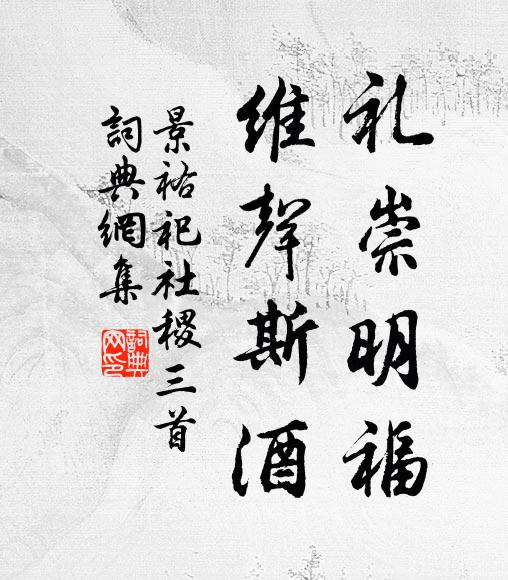 礼崇明福
維聲斯酒
景祐祀社稷三首
詞典網集
詞典網印